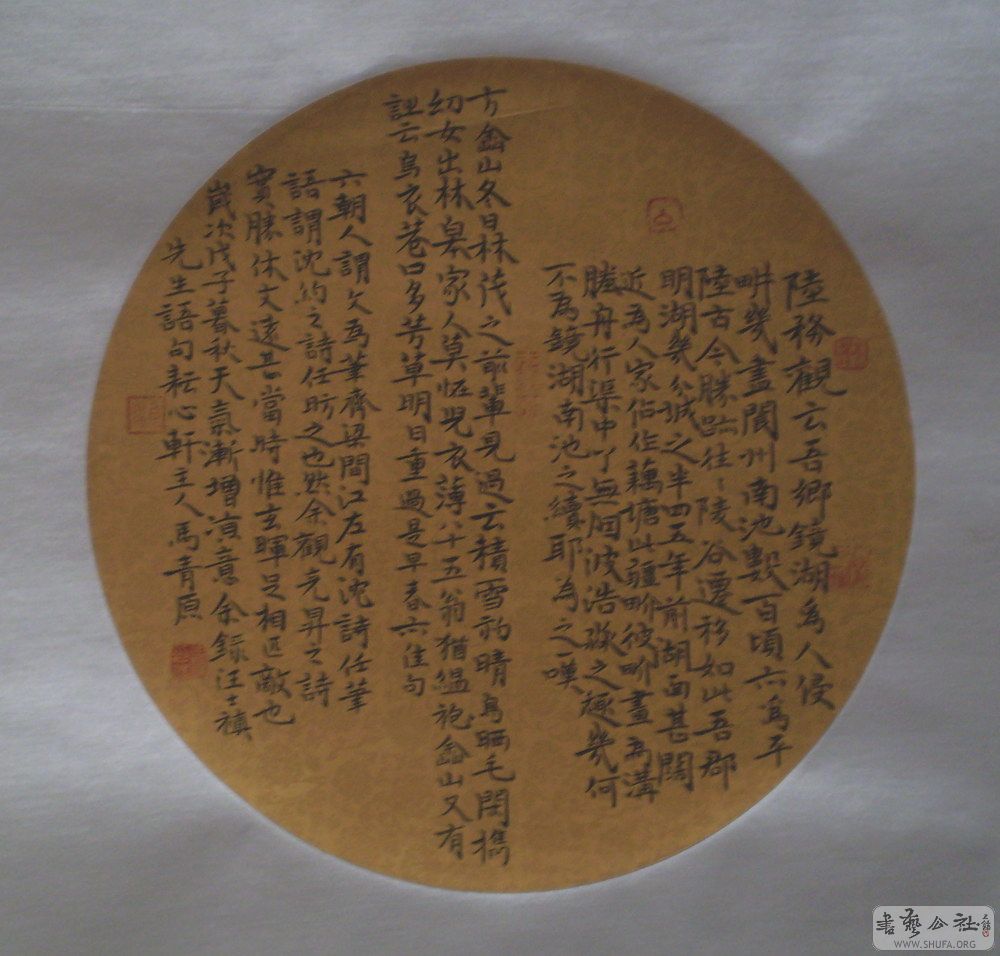 陸務觀云吾鄉鏡湖為人侵
畊幾盡閬州南池數百頃亦為平
陸古今勝跡往々陵谷遷移如此吾郡
明湖幾分城之半四五年前湖面甚闊
近為人家佔作藕塘此疆彼畍畫為溝
塍舟行渠中了無烟波浩淼之趣幾何
不為鏡湖南池之續耶為之一嘆
方嵞山冬日林茂之前輩見過云積雪初晴鳥晒毛閑攜
幼女出林皋家人莫怪兒衣薄八十五翁猶縕袍嵞山又有
詩云烏衣巷口多芳草明日重過是早春亦佳句
六朝人謂文為筆齊梁間江左有沈詩任筆
語謂沈約之詩任昉之也然余觀彥昇之詩
實勝休文遠甚當時惟玄暉足相匹敵也
歲次戊子暮秋天氣漸增涼意余錄汪士禛
先生語句耘心軒主人馬青原
書藝公社
WWW.SHUFA.ORG